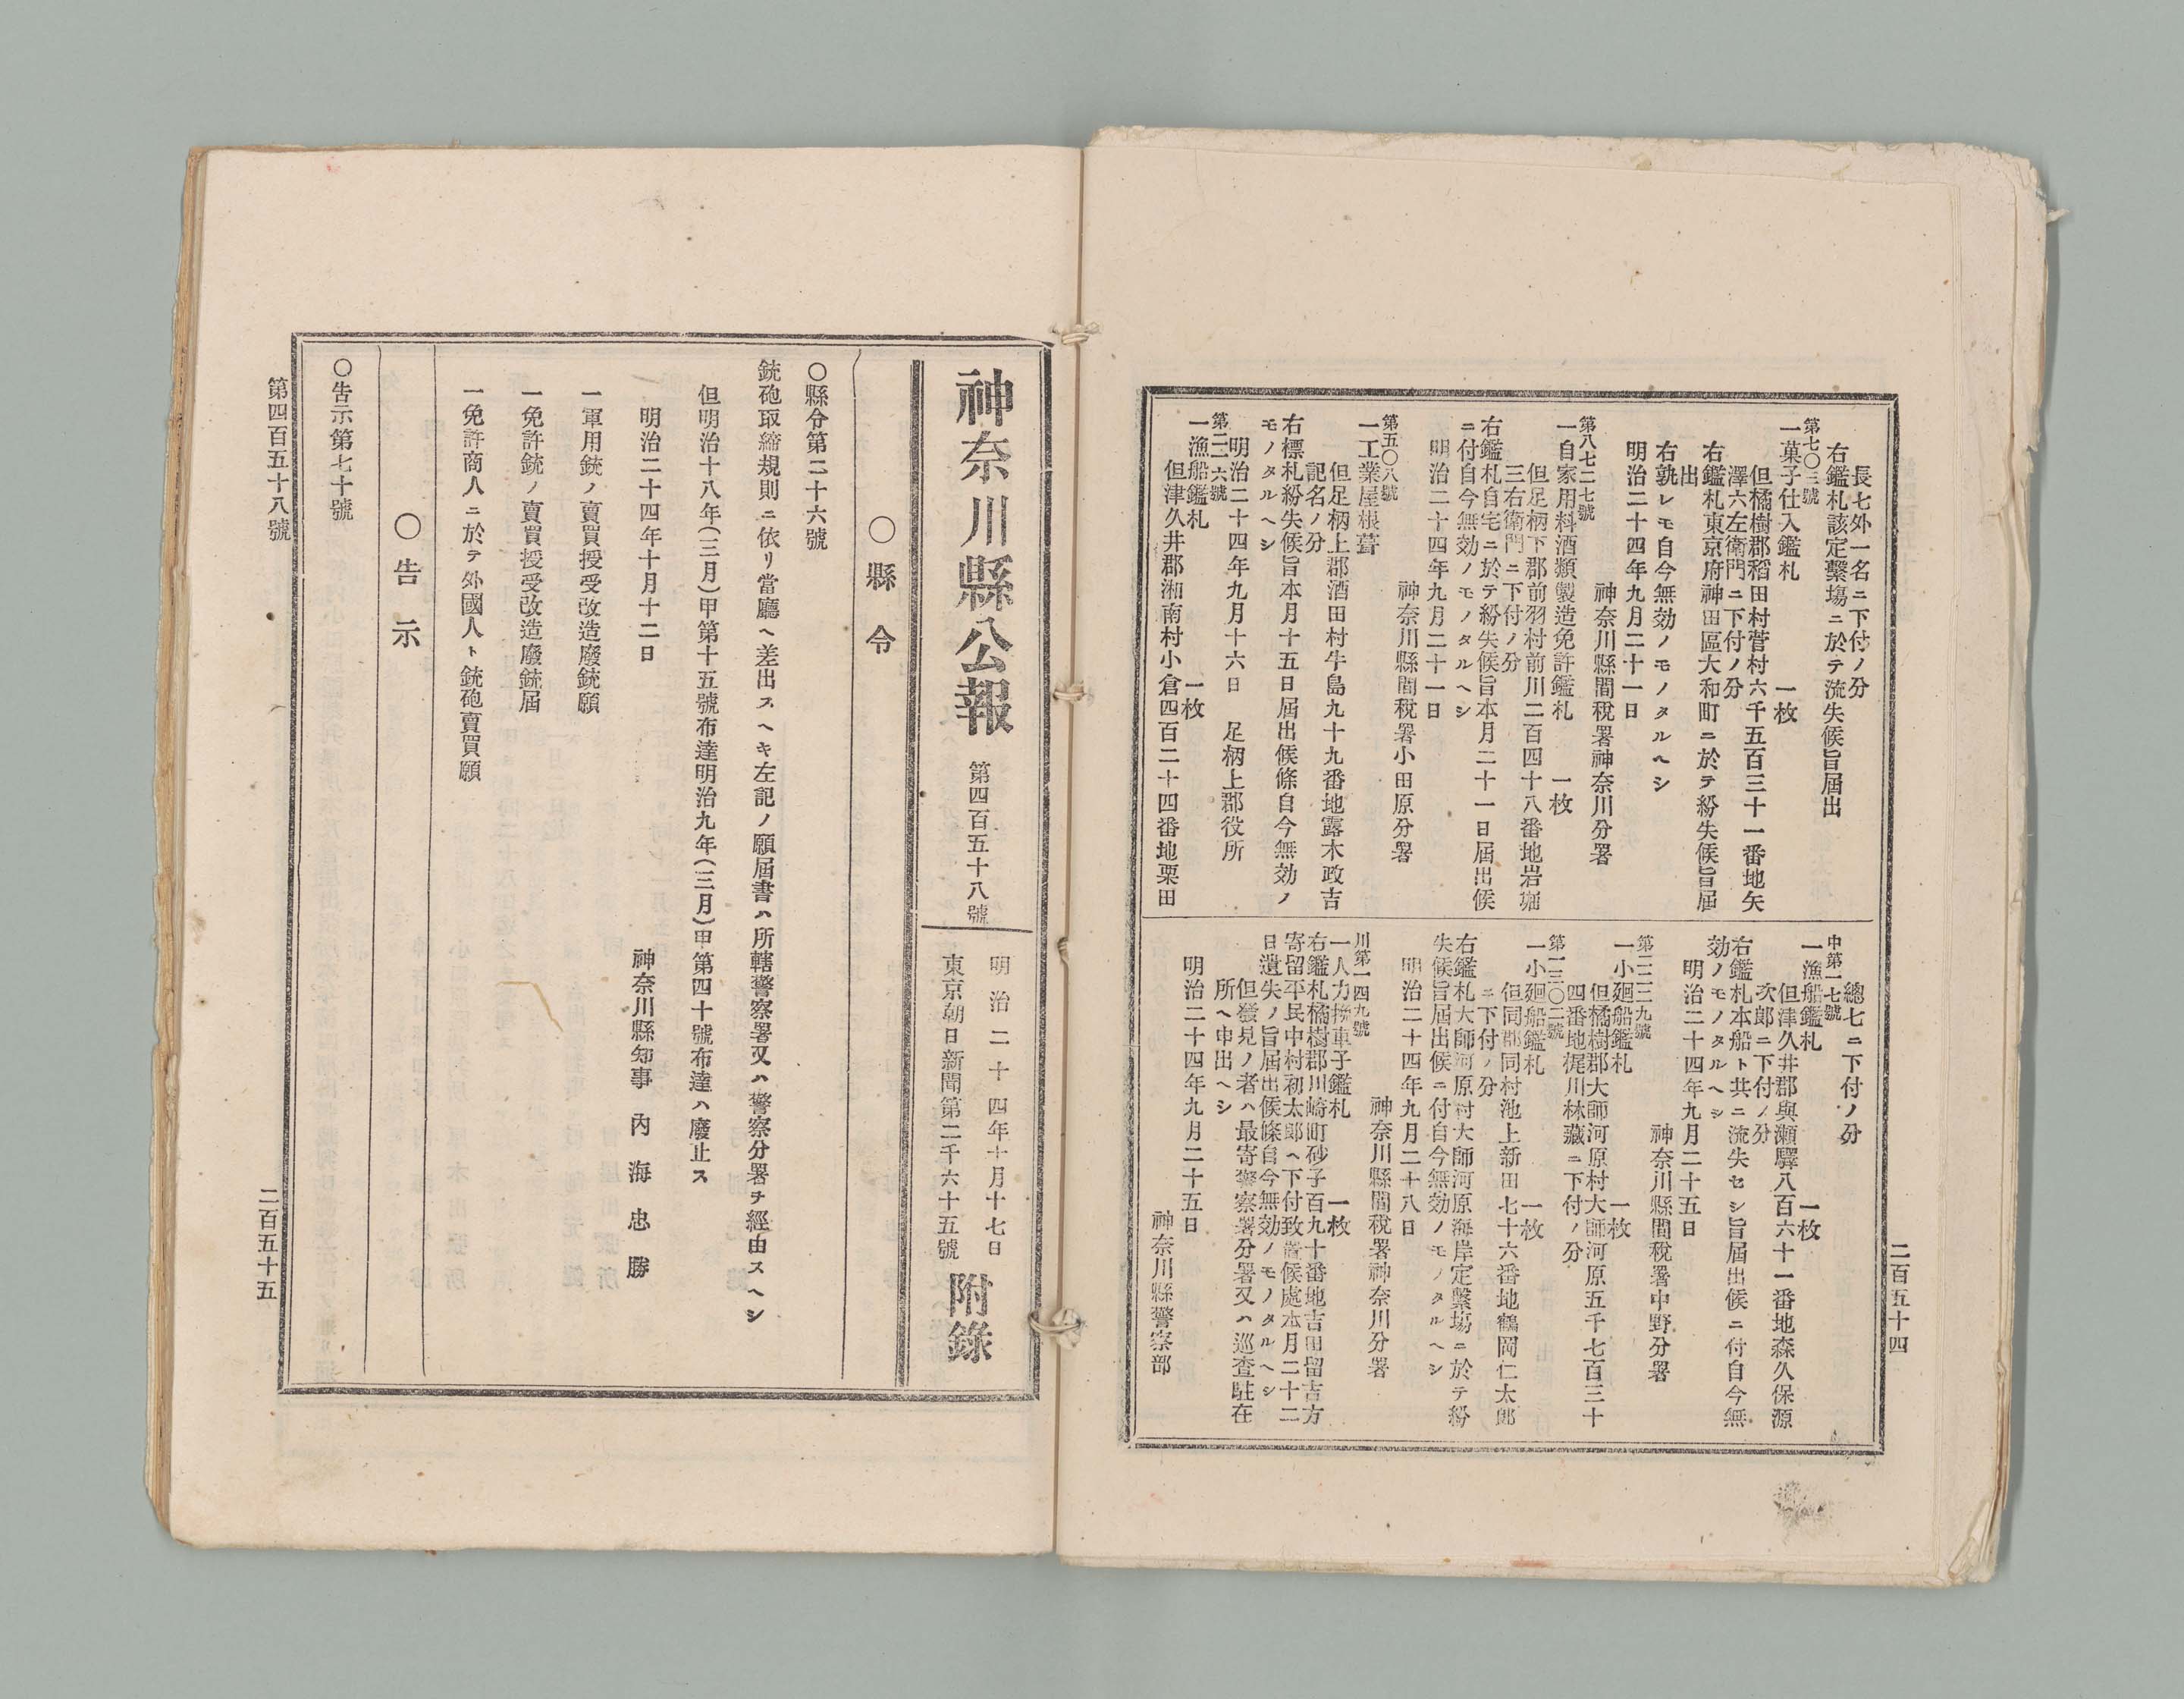 二百五十四
長七外一名ニ下付ノ分
右鑑札該定繋場ニ於テ流失候旨屆出
第七〇三號
一菓子仕入鑑札　一枚
但橘樹郡稻田村菅村六千五百三十一番地矢
澤六左衛門ニ下付ノ分
右鑑札東京府神田區大和町ニ於テ紛失候旨屆
出
右孰レモ自今無効ノモノタルヘシ
明治二十四年九月二十一日
神奈川縣間稅署神奈川分署
第八七二七號
一自家用料酒類製造免許鑑札　一枚
但足柄下郡前羽村前川二百四十八番地岩堀
三右衛門ニ下付ノ分
右鑑札自宅ニ於テ紛失候旨本月二十一日屆出候
ニ付自今無効ノモノタルヘシ
明治二十四年九月二十一日
神奈川縣間稅署小田原分署
第五〇八號
一工業屋根葺
但足柄上郡酒田村牛島九十九番地露木政吉
記名ノ分
右標札紛失候旨本月十五日屆出候條自今無効ノ
モノタルヘシ
明治二十四年九月十六日　足柄上郡役所
第二一六號
一漁船鑑札　一枚
但津久井郡湘南村小倉四百二十四番地栗田
總七ニ下付ノ分
中第一七號
一漁船鑑札　一枚
但津久井郡與瀬驛八百六十一番地森久保源
次郎ニ下付ノ分
右鑑札本船ト共ニ流失セシ旨屆出候ニ付自今無
効ノモノタルヘシ
明治二十四年九月二十五日
神奈川縣間稅署中野分署
第二二三九號
一小廻船鑑札　一枚
但橘樹郡大師河原村大師河原五千七百三十
四番地梶川林藏ニ下付ノ分
第一三〇二號
一小廻船鑑札　一枚
但同郡同村池上新田七十六番地鶴岡仁太郎
ニ下付ノ分
右鑑札大師河原村大師河原海岸定繋場ニ於テ紛
失候旨屆出候ニ付自今無効ノモノタルヘシ
明治二十四年九月二十八日
神奈川縣間稅署神奈川分署
川第一四九號
一人力挽車子鑑札　一枚
右鑑札橘樹郡川崎町砂子百九十番地吉田留吉方
寄留平民中村初太郎ヘ下付致置候處本月二十二
日遺失ノ旨屆出候條自今無効ノモノタルヘシ
但發見ノ者ハ最寄警察署分署又ハ巡査駐在
所ヘ申出ヘシ
明治二十四年九月二十五日
神奈川縣警察部
神奈川縣公報　第四百五十八號
明治二十四年十月十七日
東京朝日新聞第二千六百十五號
附錄
〇縣令
〇縣令第二十六號
銃砲取締規則ニ依リ當廳ヘ差出スヘキ左記ノ願屆書ハ所轄警察署又ハ警察分署ヲ經由スヘシ
但明治十八年(三月)甲第十五號布達明治九年(三月)甲第四十號布達ハ廢止ス
明治二十四年十月十二日
神奈川縣知事　內海忠勝
一軍用銃ノ賣買授受改造廢銃願
一免許銃ノ賣買授受改造廢銃屆
一免許商人ニ於テ外國人ト銃砲賣買願
〇告示
〇告示第七十號
第四百五十八號
二百五十五